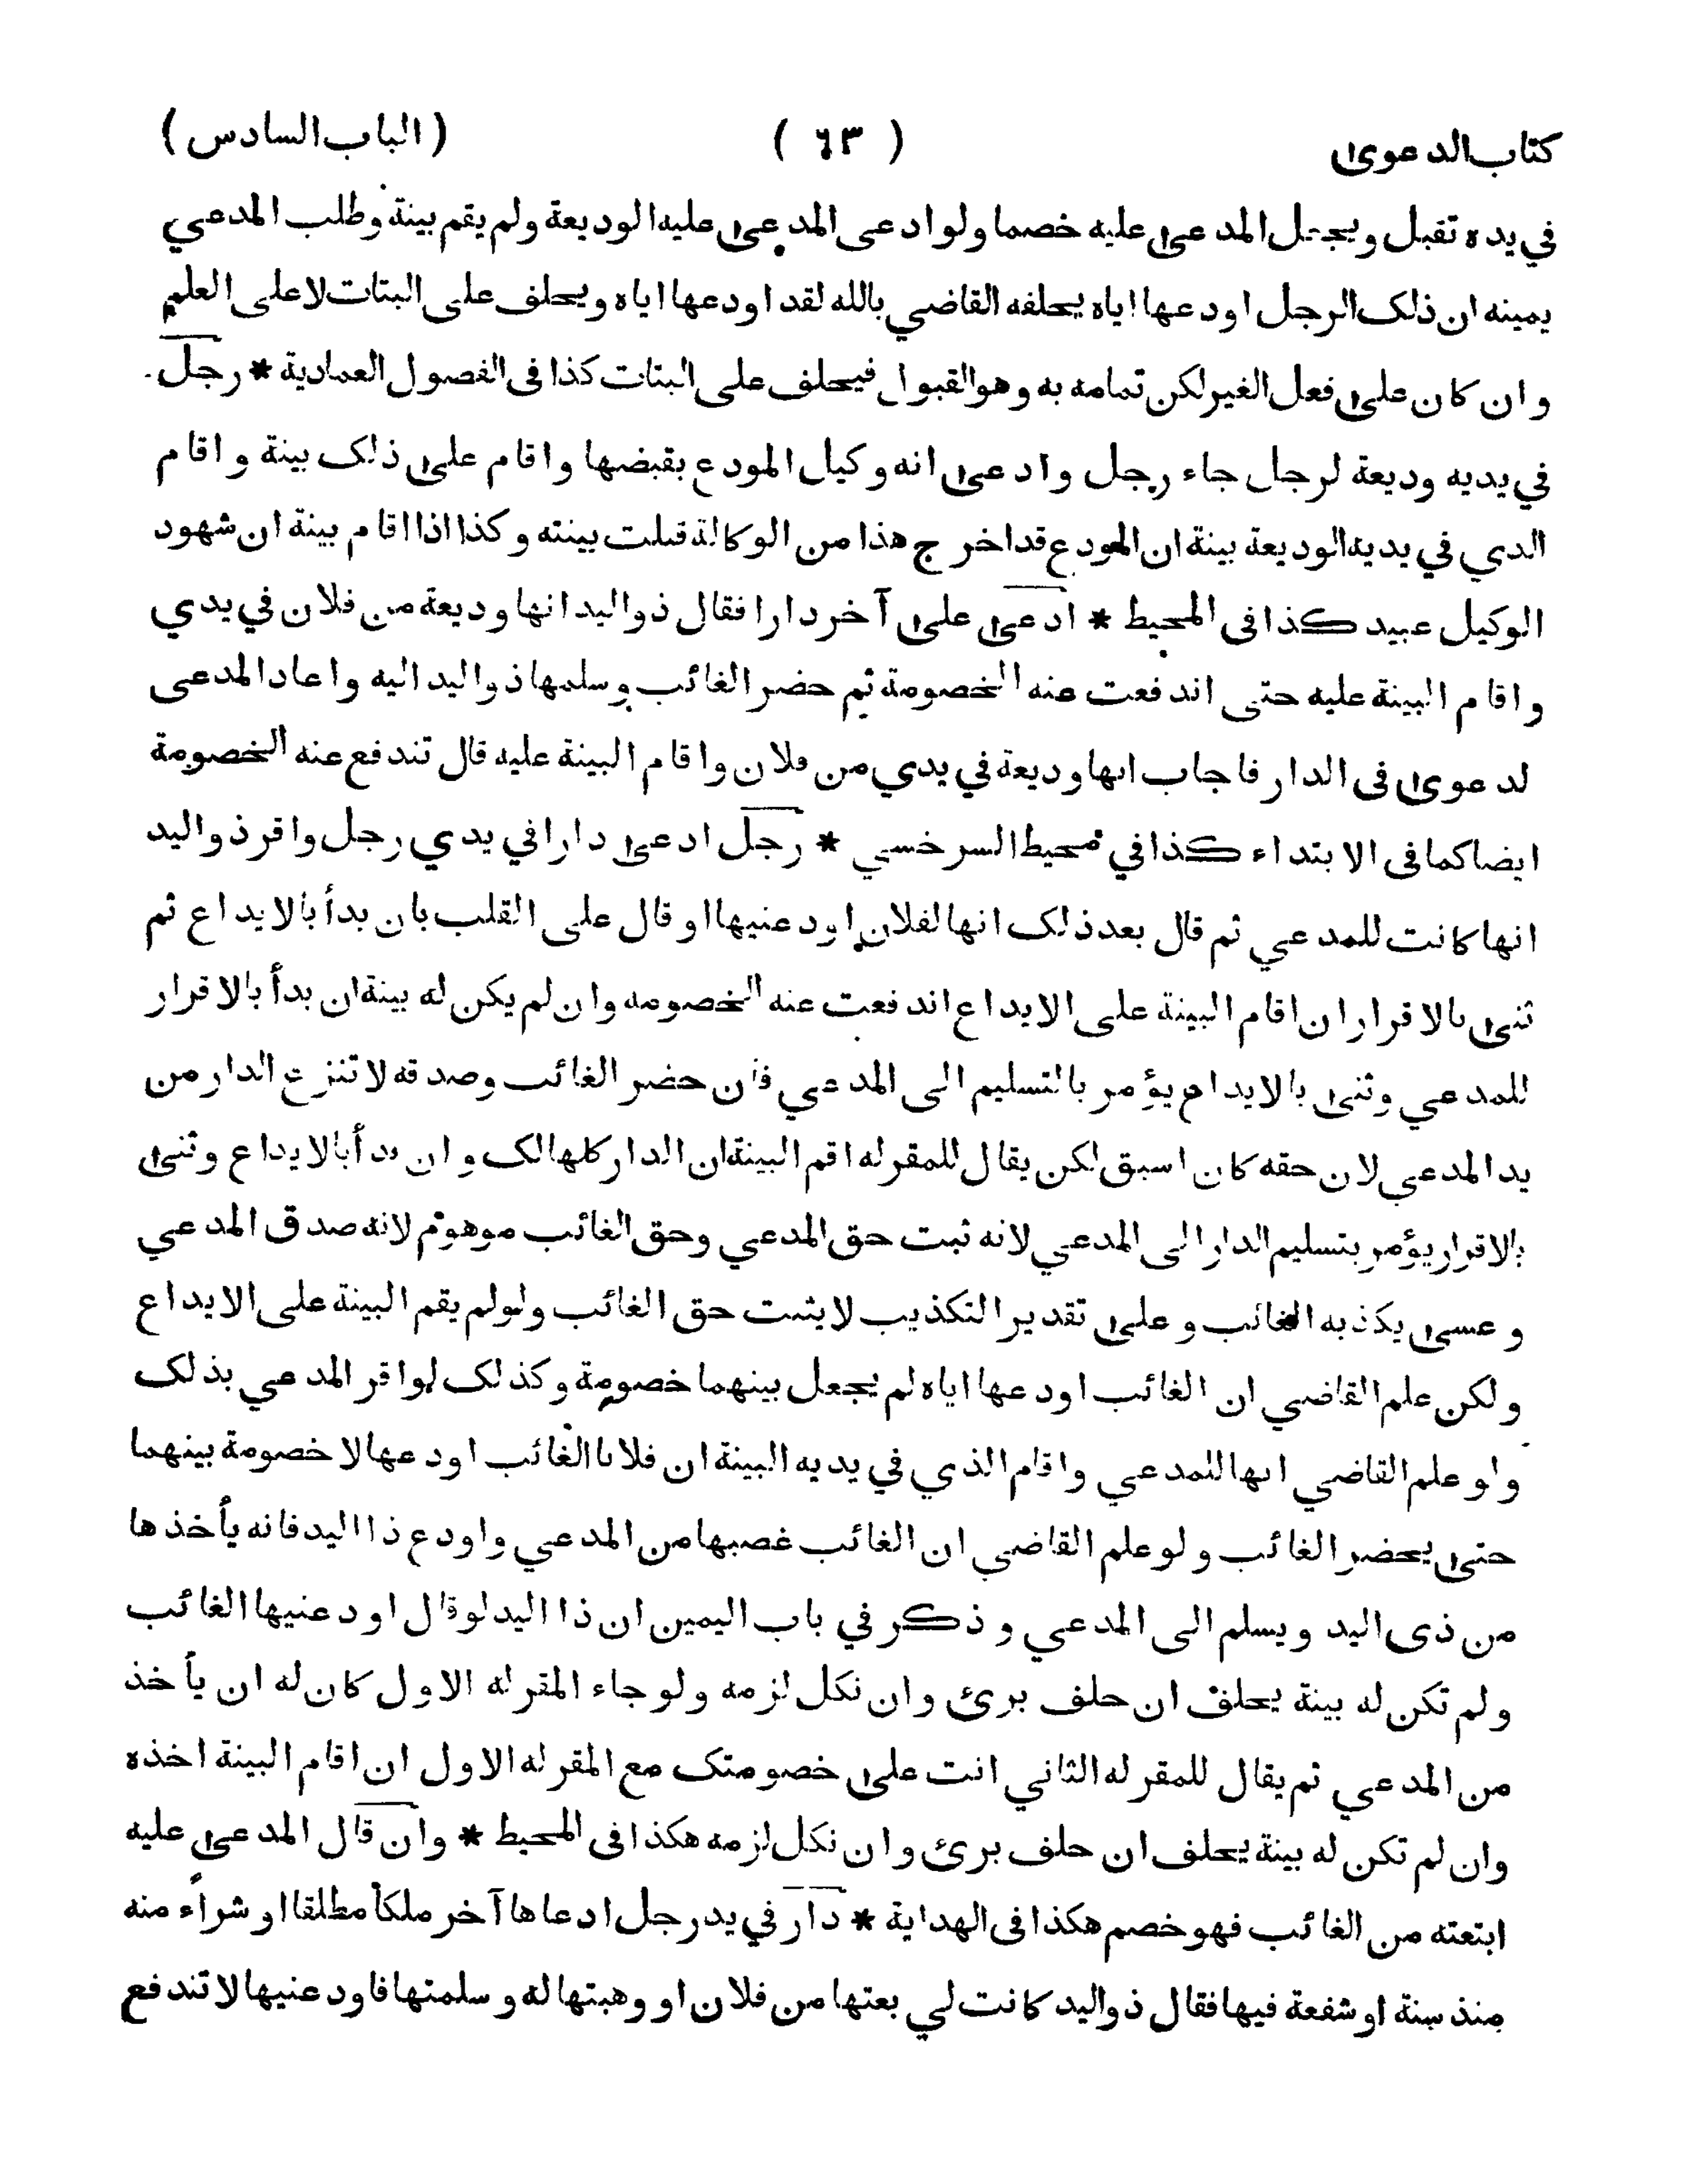 كتاب الدعوى ( ٦٣ ) ( الباب السادس )
في يده تقبل ويجعل المدعى عليه خصما ولو ادعى المدعى عليه الوديعة ولم يقم بينة وطلب المدعي
يمينه ان ذلك الرجل اودعها اياه يحلفه القاضي بالله لقد اودعها اياه ويحلف على البتات لا على العلم
وان كان على فعل الغير لكن تمامه به وهو القبول فيحلف على البتات كذا فى الفصول العمادية * رجل
في يديه وديعة لرجل جاء رجل وادعى انه وكيل المودع بقبضها واقام على ذلك بينة واقام
الذي في يديه الوديعة بينة ان المودع قد اخرج هذا من الوكالة قبلت بينته وكذا اذا اقام بينة ان شهود
الوكيل عبيد كذا فى المحيط * ادعى على آخر دارا فقال ذو اليد انها وديعة من فلان في يدي
واقام البينة عليه حتى اندفعت عنه الخصومة ثم حضر الغائب وسلمها ذو اليد اليه واعاد المدعى
لدعوى فى الدار فاجاب انها وديعة في يدي من فلان واقام البينة عليه قال تندفع عنه الخصومة
ايضا كما فى الابتداء كذا في محيط السرخسي * رجل ادعى دارا في يدي رجل واقر ذو اليد
انها كانت للمدعي ثم قال بعد ذلك انها لفلان اودعنيها او قال على القلب بان بدأ بالايداع ثم
ثنى بالاقرار ان اقام البينة على الايداع اندفعت عنه الخصومه وان لم يكن له بينة ان بدأ بالاقرار
للمدعي وثنى بالايداع يؤمر بالتسليم الى المدعي فان حضر الغائب وصدقه لا تنزع الدار من
يد المدعي لان حقه كان اسبق لكن يقال للمقر له اقم البينة ان الدار كلها لك وان بدأ بالايداع وثنى
بالاقرار يؤمر بتسليم الدار الى المدعي لانه ثبت حق المدعي وحق الغائب موهوم لانه صدق المدعي
وعسى يكذبه الغائب وعلى تقدير التكذيب لا يثبت حق الغائب ولو لم يقم البينة على الايداع
ولكن علم القاضي ان الغائب اودعها اياه لم يجعل بينهما خصومة وكذلك لو اقر المدعي بذلك
ولو علم القاضي انها للمدعي واقام الذي في يديه البينة ان فلانا الغائب اودعها لا خصومة بينهما
حتى يحضر الغائب ولو علم القاضي ان الغائب غصبها من المدعي واودع ذا اليد فانه يأخذها
من ذى اليد ويسلم الى المدعي وذكر في باب اليمين ان ذا اليد لو قال اودعنيها الغائب
ولم تكن له بينة يحلف ان حلف برئ وان نكل لزمه ولو جاء المقر له الاول كان له ان يأخذ
من المدعي ثم يقال للمقر له الثاني انت على خصومتك مع المقر له الاول ان اقام البينة اخذه
وان لم تكن له بينة يحلف ان حلف برئ وان نكل لزمه هكذا فى المحيط * وان قال المدعى عليه
ابتعته من الغائب فهو خصم هكذا فى الهداية * دار في يد رجل ادعاها آخر ملكا مطلقا او شراء منه
منذ سنة او شفعة فيها فقال ذو اليد كانت لي بعتها من فلان او وهبتها له وسلمتها فاودعنيها لا تندفع